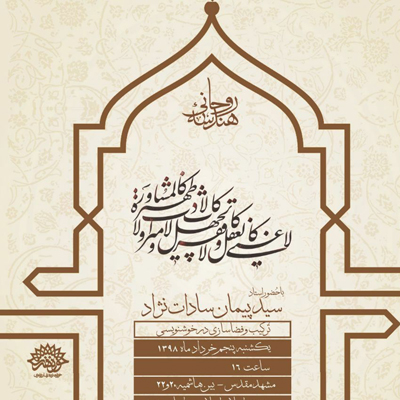 هندسه روحانی
لا غنی کالعقل و لا فقر کالجهل و لا میراث کالادب و لا ظهیر کالمشاورة
با حضور استاد
سید پیمان سادات نژاد
ترکیب و فضاسازی در خوشنویسی
یکشنبه پنجم خرداد ماه ۱۳۹۸
ساعت ۱۶
مشهد مقدس - بین هاشمیه ۲۰ و ۲۲